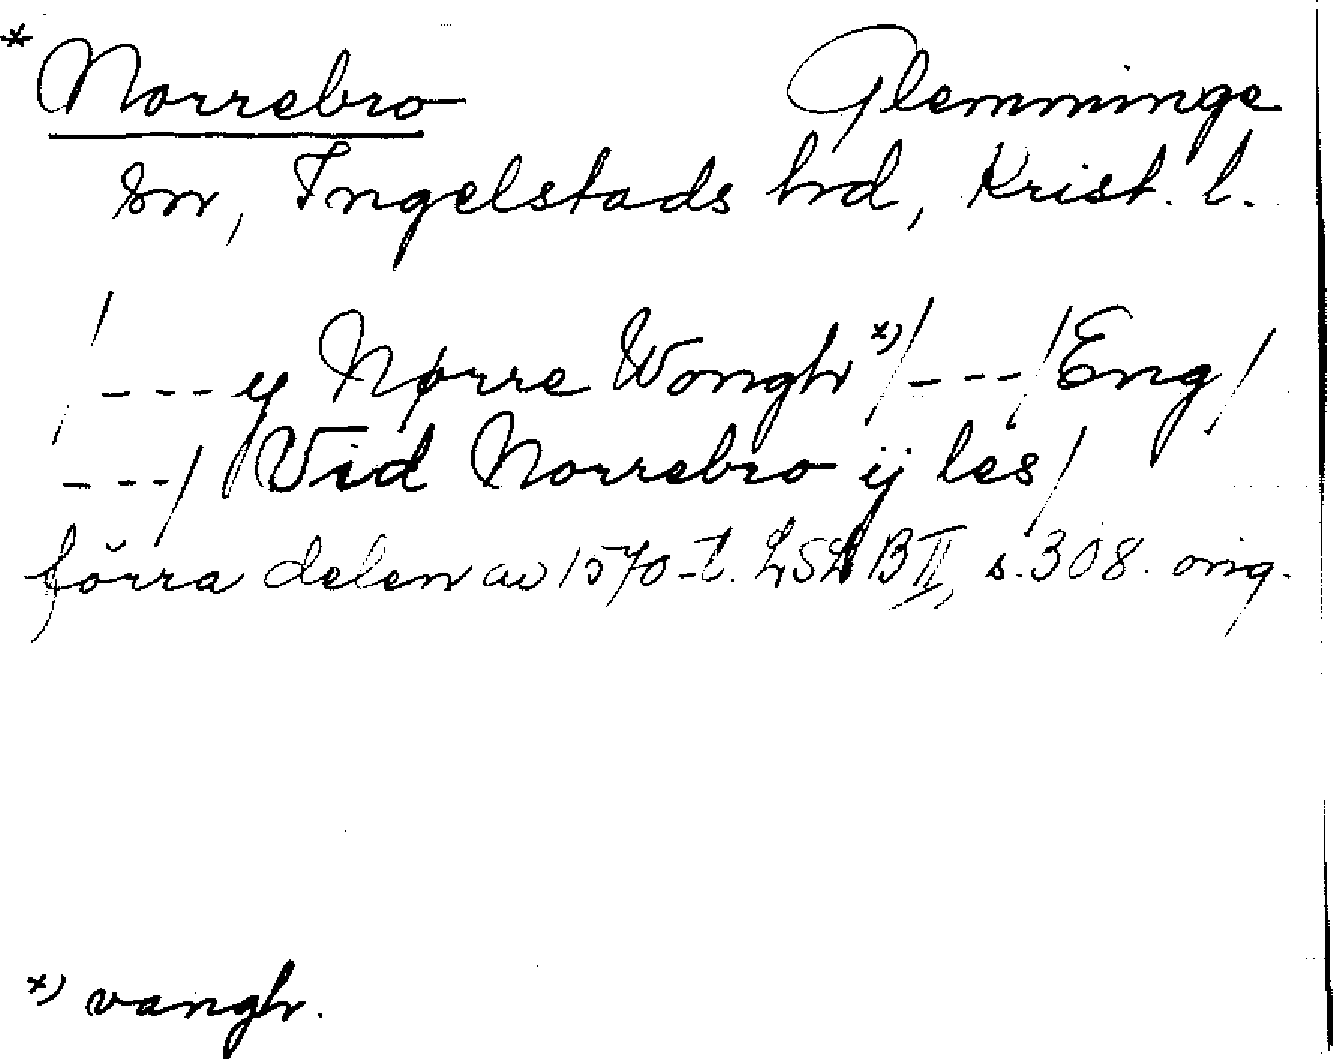 * Norrebro Glemminge
sn, Ingelstads hrd, Krist. l.
/---y Nørre Wongh *)/---/Eng/
---/ Vid Norrebro ij les/
förra delen av 1570-t. LSLB II, s. 308. orig.
*) vangh.